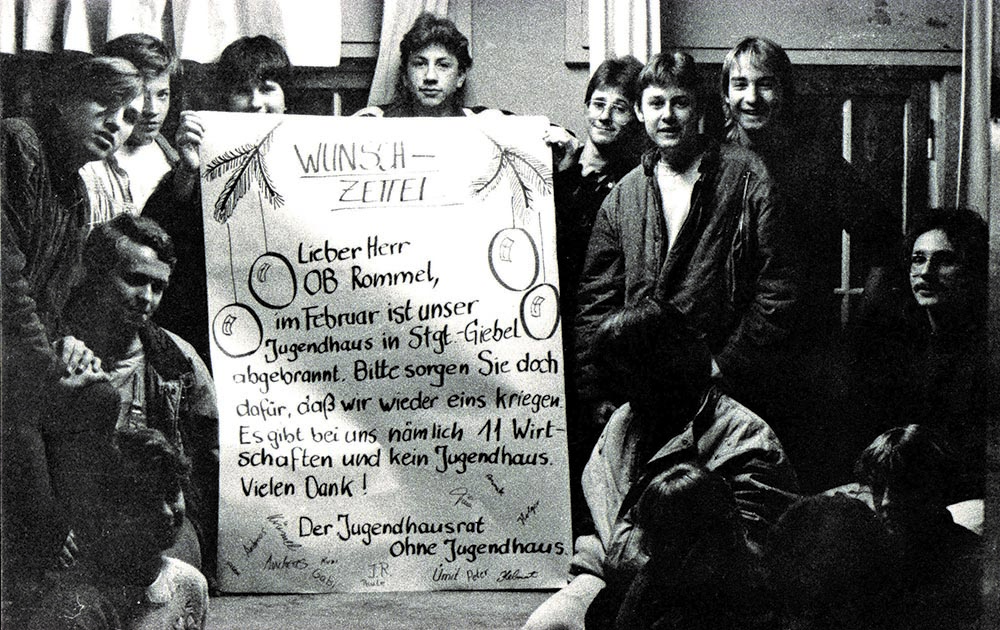 WUNSCH-
ZETTEL
Lieber Herr
OB Rommel,
im Februar ist unser
Jugendhaus in Stgt.-Giebel
abgebrannt. Bitte sorgen Sie doch
dafür, daß wir wieder eins kriegen.
Es gibt bei uns nämlich 11 Wirt-
schaften und kein Jugendhaus.
Vielen Dank!
Der Jugendhausrat
Ohne Jugendhaus.
Holger
Andreas Gabi JR Ümit Peter Helmut